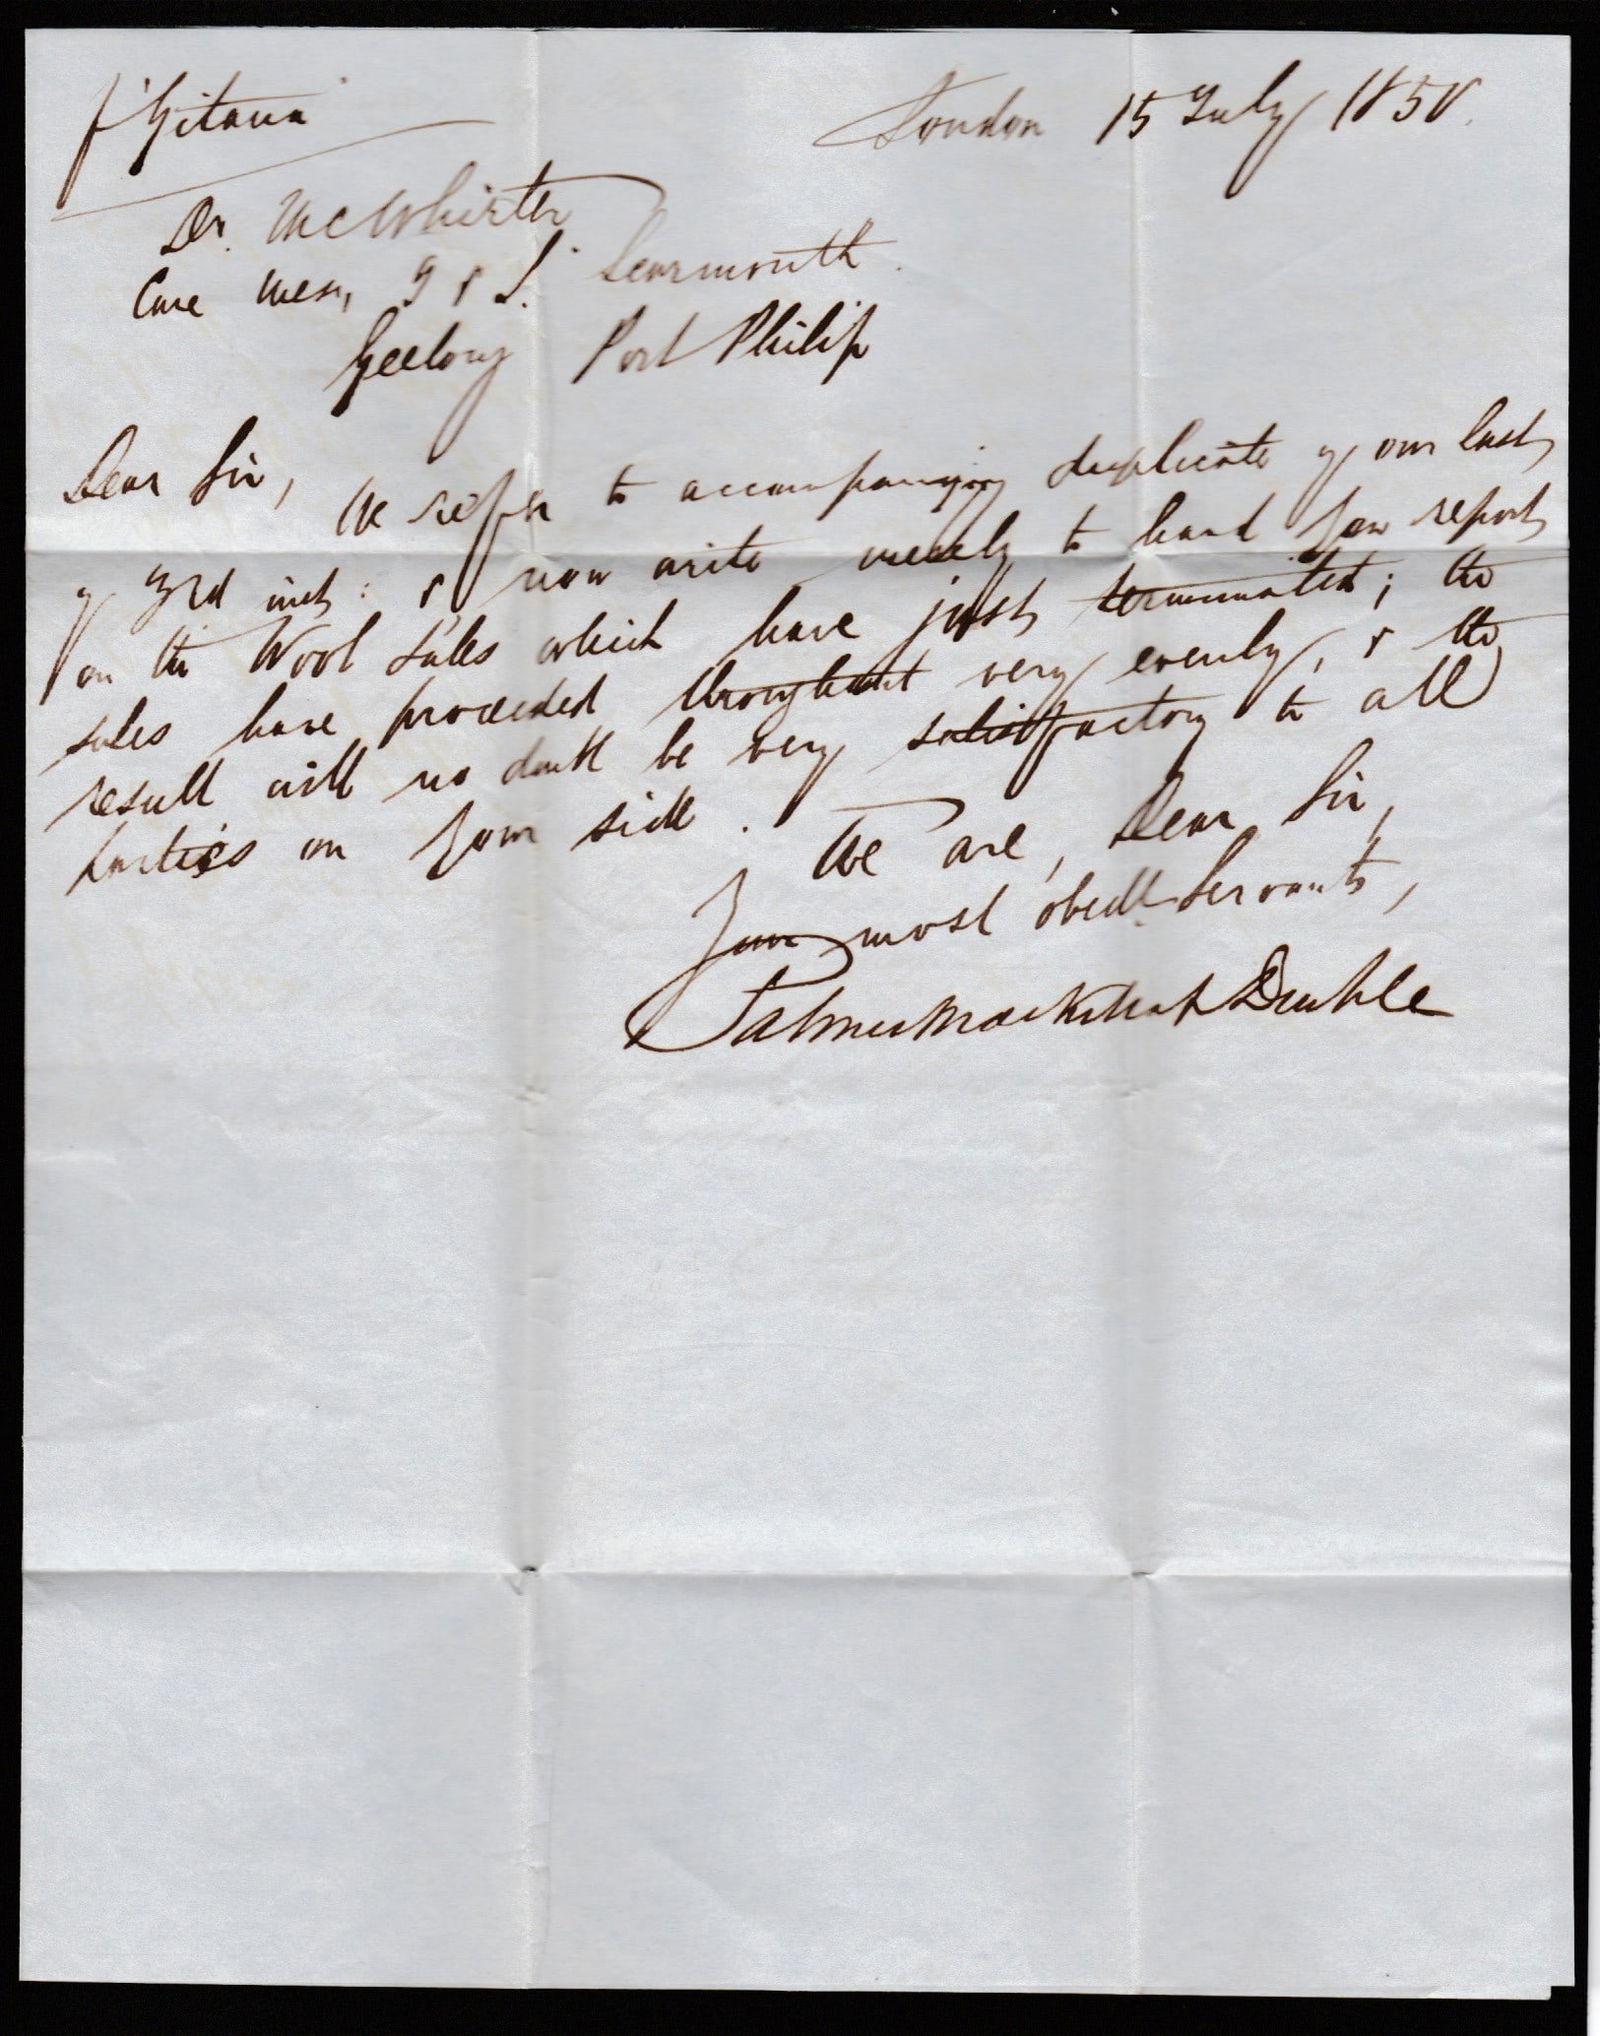 p "Gitana"
London 15 July 1850.
Dr. McWhirter
Care Messrs J & S. Learmonth.
Geelong Port Philip
Dear Sir,
We refer to accompanying duplicate of our last,
of 3rd inst: & now write merely to hand you report
on the Wool Sales which have just terminated; the
sales have proceeded throughout very evenly, & the
result will no doubt be very satisfactory to all
parties on your side.
We are, Dear Sir,
Your most obedt Servants,
Palmer Mackillop Dent &